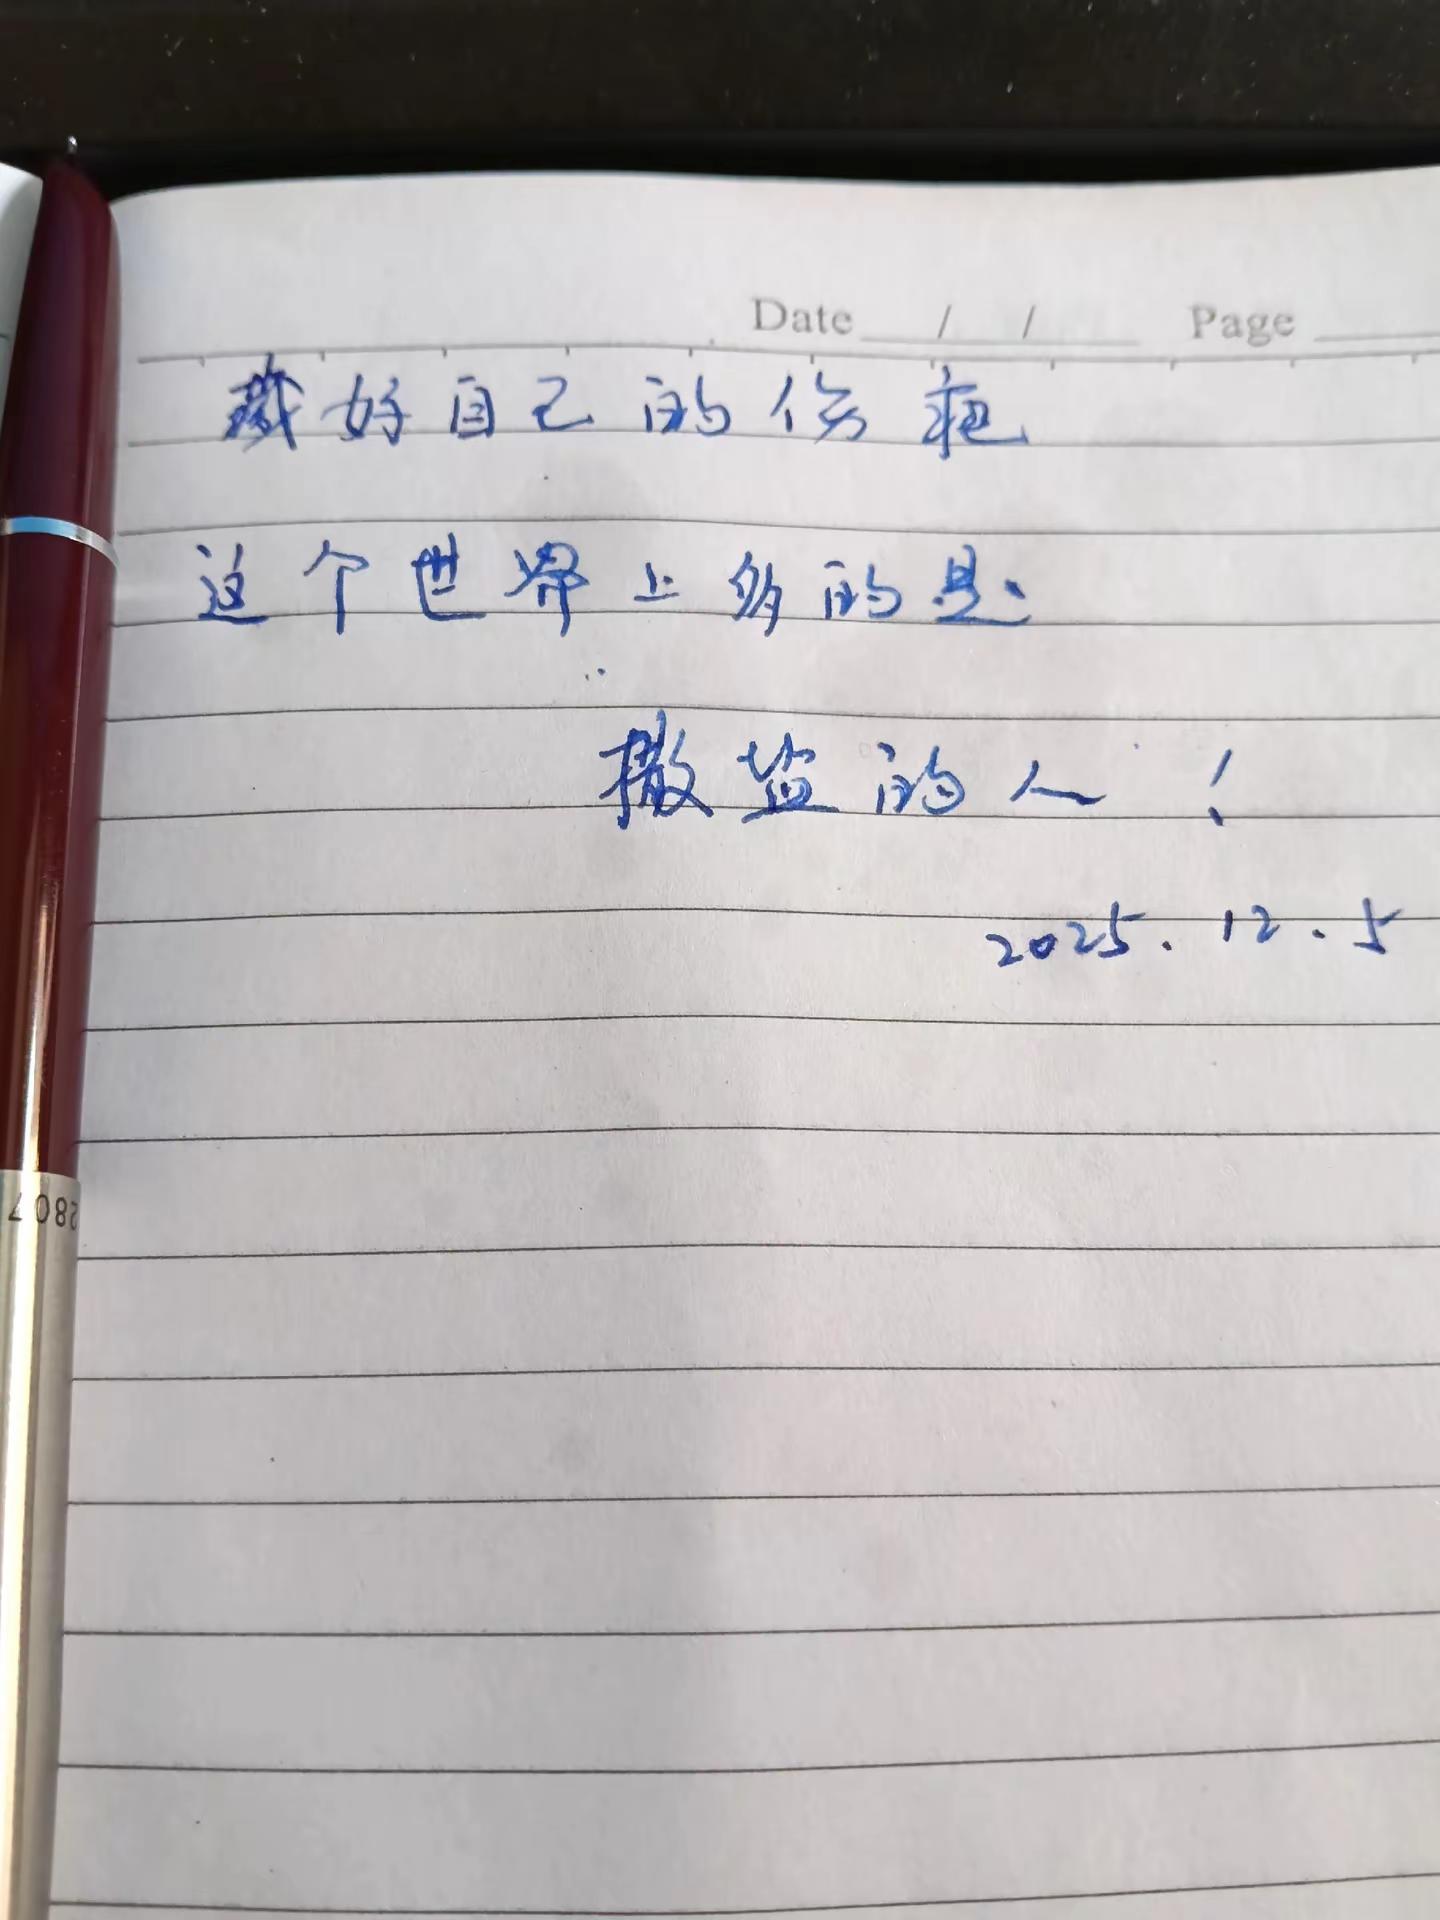 Date / / Page
藏好自己的伤疤
这个世界上多的是
撒盐的人！
2025.12.5
2807